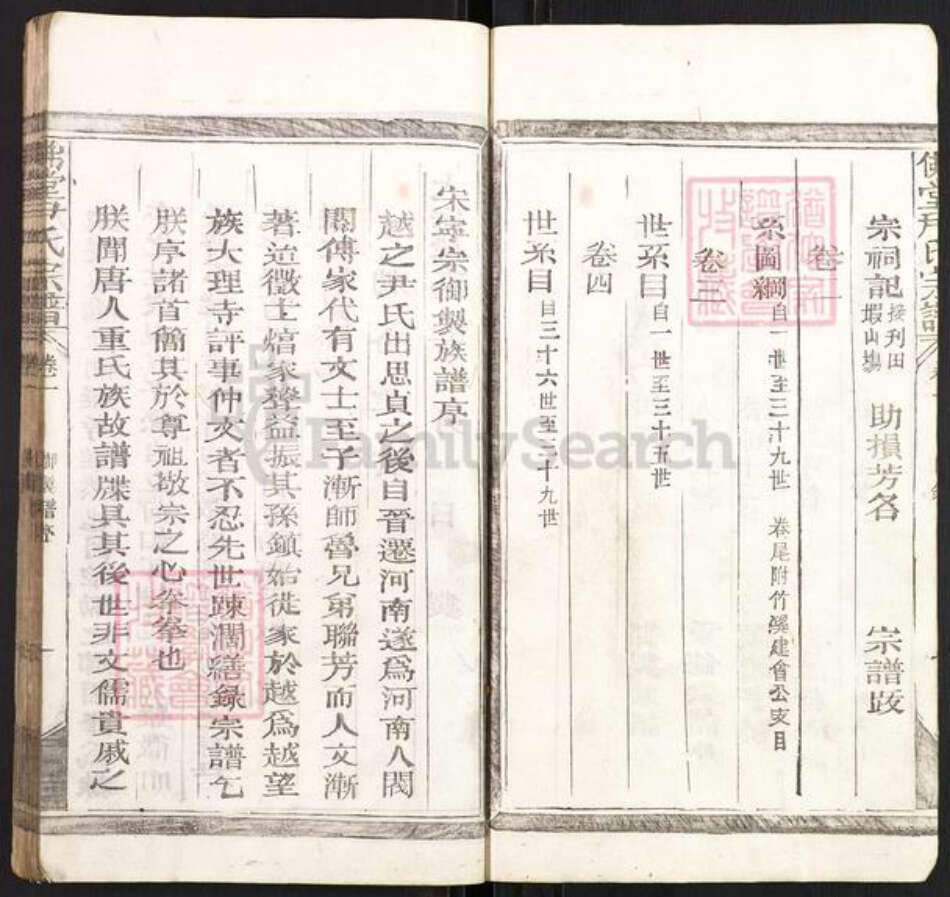 宗祠記 接利田 墈山塲 助損芳名 宗譜跋
卷二
系圖綱 自一世至三十九世 卷尾附竹溪建會公支目
卷三
世系目 自一世至三十五世
卷四
世系目 自三十六世至三十九世
宋寧宗御製族譜序
越之尹氏出思貞之後自晉遷河南遂爲河南人閥
閱傳家代有文士至子漸師魯兄弟聯芳而人文漸
著迨徵士焞家聲益振其孫鎮始徙家於越爲越望
族大理寺評事仲文者不忍先世踈濶繕録宗譜乞
朕序諸首簡其於尊祖敬宗之心拳拳也
朕聞唐人重氏族故譜牒具其後世非文儒貴戚之
卷一
FamilySearch